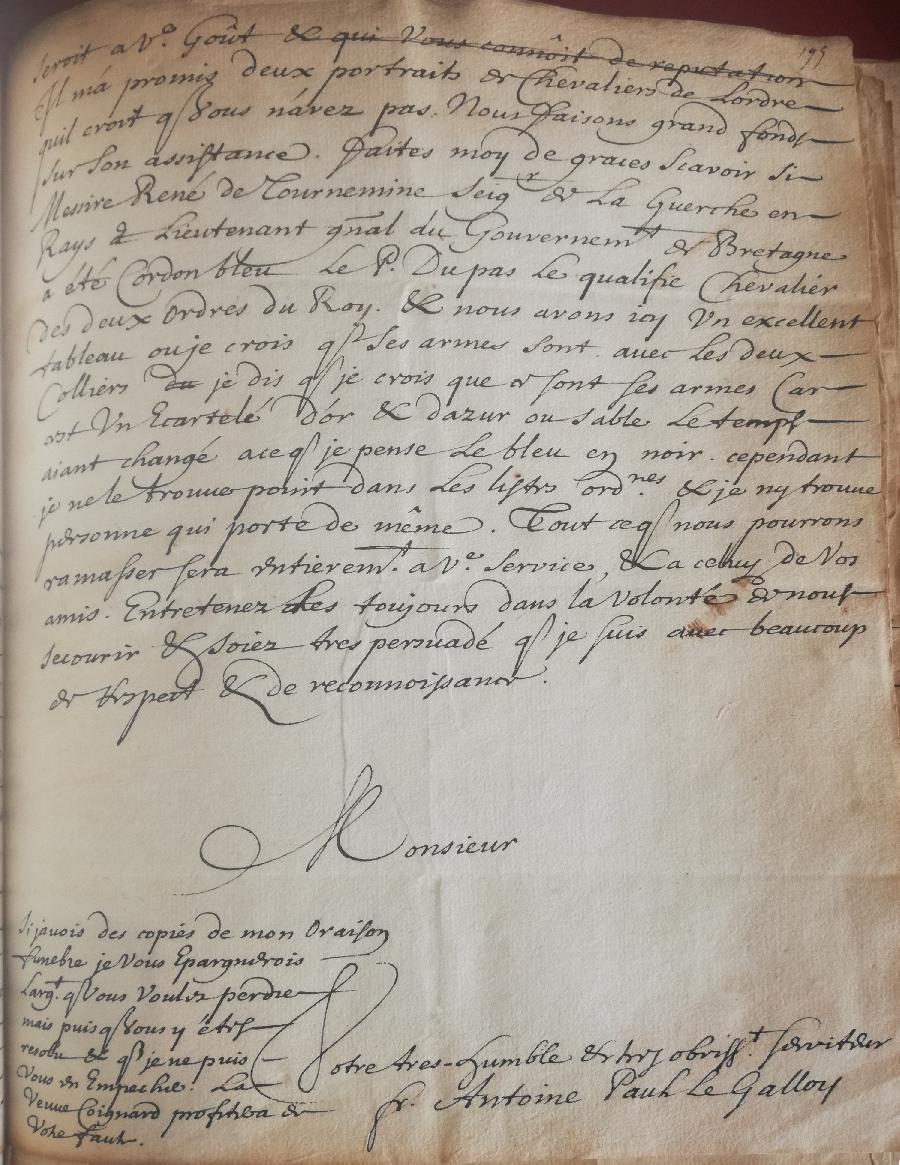 195
seroit a vᵉ. Goût & qui Vous connôit de reputation
Il má promis deux portraits de Chevaliers de Lordre
quil croit q̃ Vous návez pas. Nous faisons grand fonds
sur son assistance. Faites moy de graces scavoir si
Messire René de Tournemine seigʳ de La Guerche en
Rays & Lieutenant gñal du Gouvernemᵗ de Bretagne
a été Cordon bleu Le P. Du pas Le qualifie Chevalier
des deux Ordres du Roy. & nous avons icy Un excellent
tableau ou je crois q̃ Ses armes sont avec Les deux
Colliers ou je dis q̃ je crois que ce sont ses armes Car
cest Un Ecartelé Dor & dazur ou Sable Le temps
aiant changé a ce q̃ je pense Le bleu en noir. cependant
je ne le trouve point dans Les listes ordⁿᵉˢ & je ny trouve
personne qui porte de même. Tout ce q̃ nous pourrons
ramasser sera entieremᵗ. a vᵉ. service, & a celuy de Vos
amis. Entretenez Les toujours dans la Volonté de nous
secourir & soiez tres persuadé q̃ je suis avec beaucoup
de respect & de reconnoissance.
Monsieur
Si javois des copies de mon Oraison
funebre je Vous Epargnerois
Largᵗ. q̃ Vous Voulez perdre
mais puis q̃ Vous y étes
resolu & q̃ je ne puis
Vous en Empecher. La
Veuve Coignard profitera de
Votre faute.
Votre tres-humble & tres obeissᵗ. serviteur
fr. Antoine Paul Le Galloy